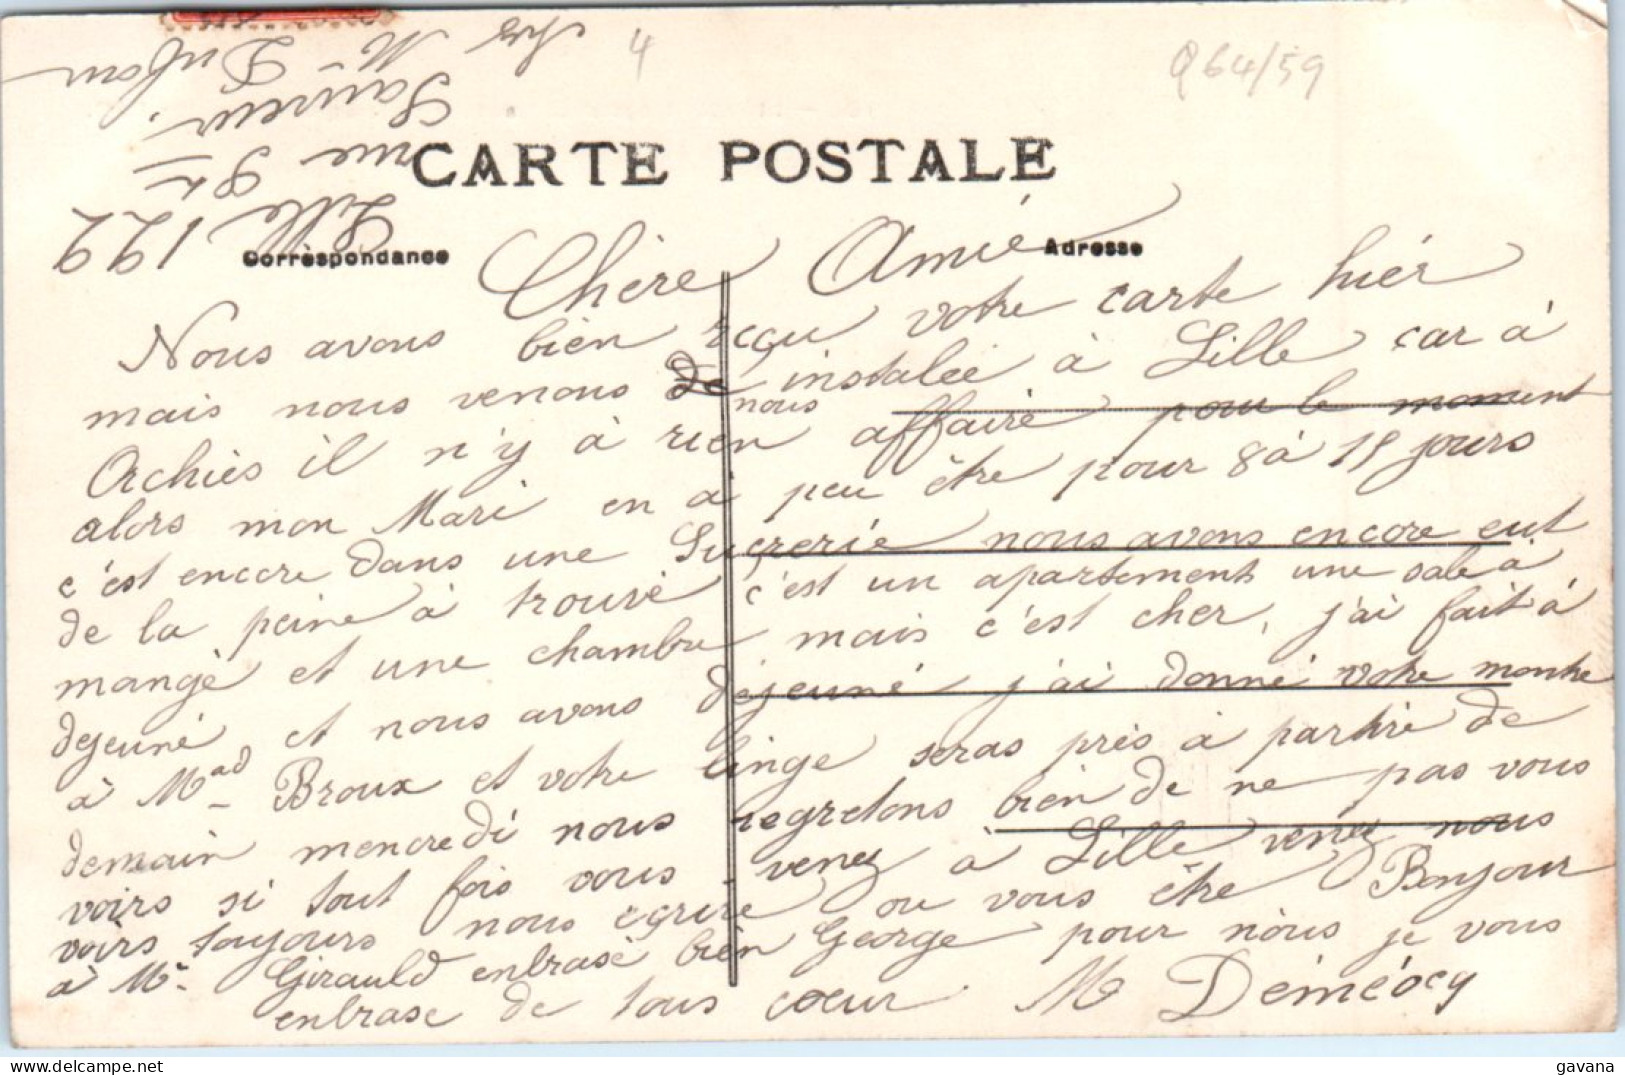 4
Q64/59
chez M. Dufour
Sauveur
rue St
Lille 122
CARTE POSTALE
Correspondance
Adresse
Chère Amié
Nous avons bien reçu votre carte hiér
mais nous venons de nous instalée à Lille car à
Orchiès il n'y à rien affairé pour le moment
alors mon Mari en à peu être pour 8 à 15 jours
c'est encore dans une Sucrerié nous avons encore eut
de la peine à trouvé c'est un apartement une sale à
mangé et une chambre mais c'est cher, j'ai fait à
dejeuné et nous avons déjeuné j'ai donné votre montre
à Mad Broux et votre linge seras près à partire de
demain mencredi nous regretons bien de ne pas vous
voirs si tout fois vous venez à Lille venez nous
voirs toujours nous écrire ou vous être Bonjour
à Mr Girauld enbrasé bien George pour nous je vous
enbrase de tous cœur M Déméocq
gavana